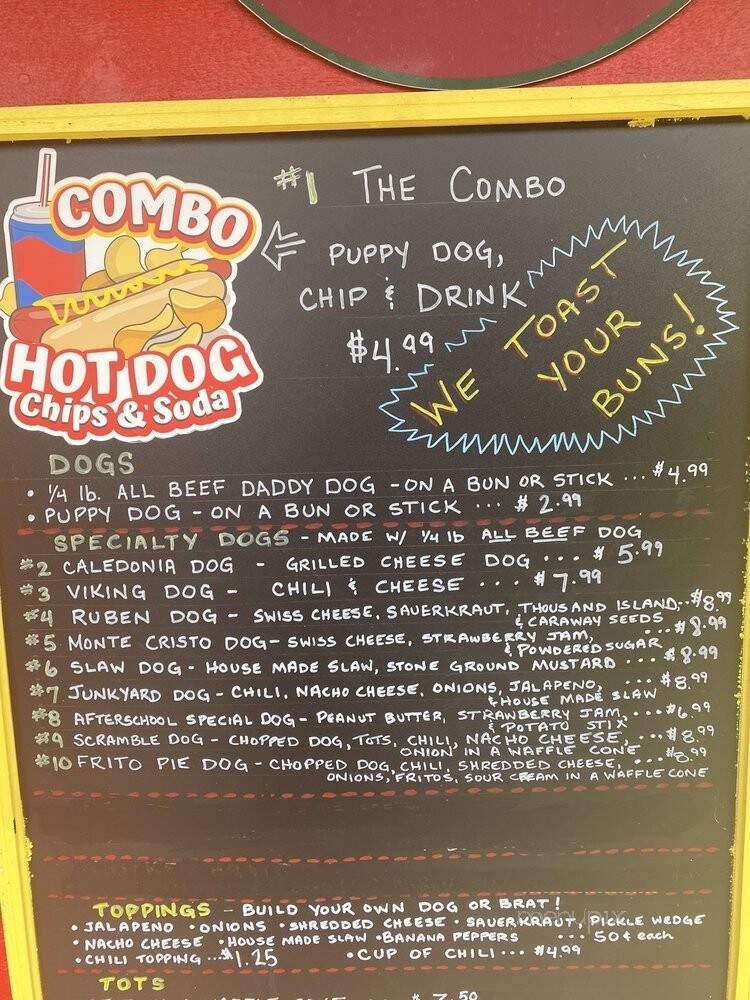 COMBO
HOT DOG
Chips & Soda
#1 THE COMBO
PUPPY DOG,
CHIP & DRINK
$4.99
WE TOAST
YOUR
BUNS!
DOGS
• 1/4 lb. ALL BEEF DADDY DOG - ON A BUN OR STICK ... $4.99
• PUPPY DOG - ON A BUN OR STICK ... $2.99
SPECIALTY DOGS - MADE W/ 1/4 lb ALL BEEF DOG
#2 CALEDONIA DOG - GRILLED CHEESE DOG ... $5.99
#3 VIKING DOG - CHILI & CHEESE ... $7.99
#4 RUBEN DOG - SWISS CHEESE, SAUERKRAUT, THOUSAND ISLAND, ... $8.99
& CARAWAY SEEDS
#5 MONTE CRISTO DOG - SWISS CHEESE, STRAWBERRY JAM, ... $8.99
& POWDERED SUGAR
#6 SLAW DOG - HOUSE MADE SLAW, STONE GROUND MUSTARD ... $8.99
#7 JUNKYARD DOG - CHILI, NACHO CHEESE, ONIONS, JALAPENO, ... $8.99
& HOUSE MADE SLAW
#8 AFTERSCHOOL SPECIAL DOG - PEANUT BUTTER, STRAWBERRY JAM, ... $6.99
& POTATO STIX
#9 SCRAMBLE DOG - CHOPPED DOG, TOTS, CHILI, NACHO CHEESE, ... $8.99
ONION IN A WAFFLE CONE
#10 FRITO PIE DOG - CHOPPED DOG, CHILI, SHREDDED CHEESE, ... $8.99
ONIONS, FRITOS, SOUR CREAM IN A WAFFLE CONE
TOPPINGS - BUILD YOUR OWN DOG OR BRAT!
• JALAPENO • ONIONS • SHREDDED CHEESE • SAUERKRAUT, PICKLE WEDGE
• NACHO CHEESE • HOUSE MADE SLAW • BANANA PEPPERS ... 50¢ each
• CHILI TOPPING ... $1.25 • CUP OF CHILI ... $4.99
TOTS